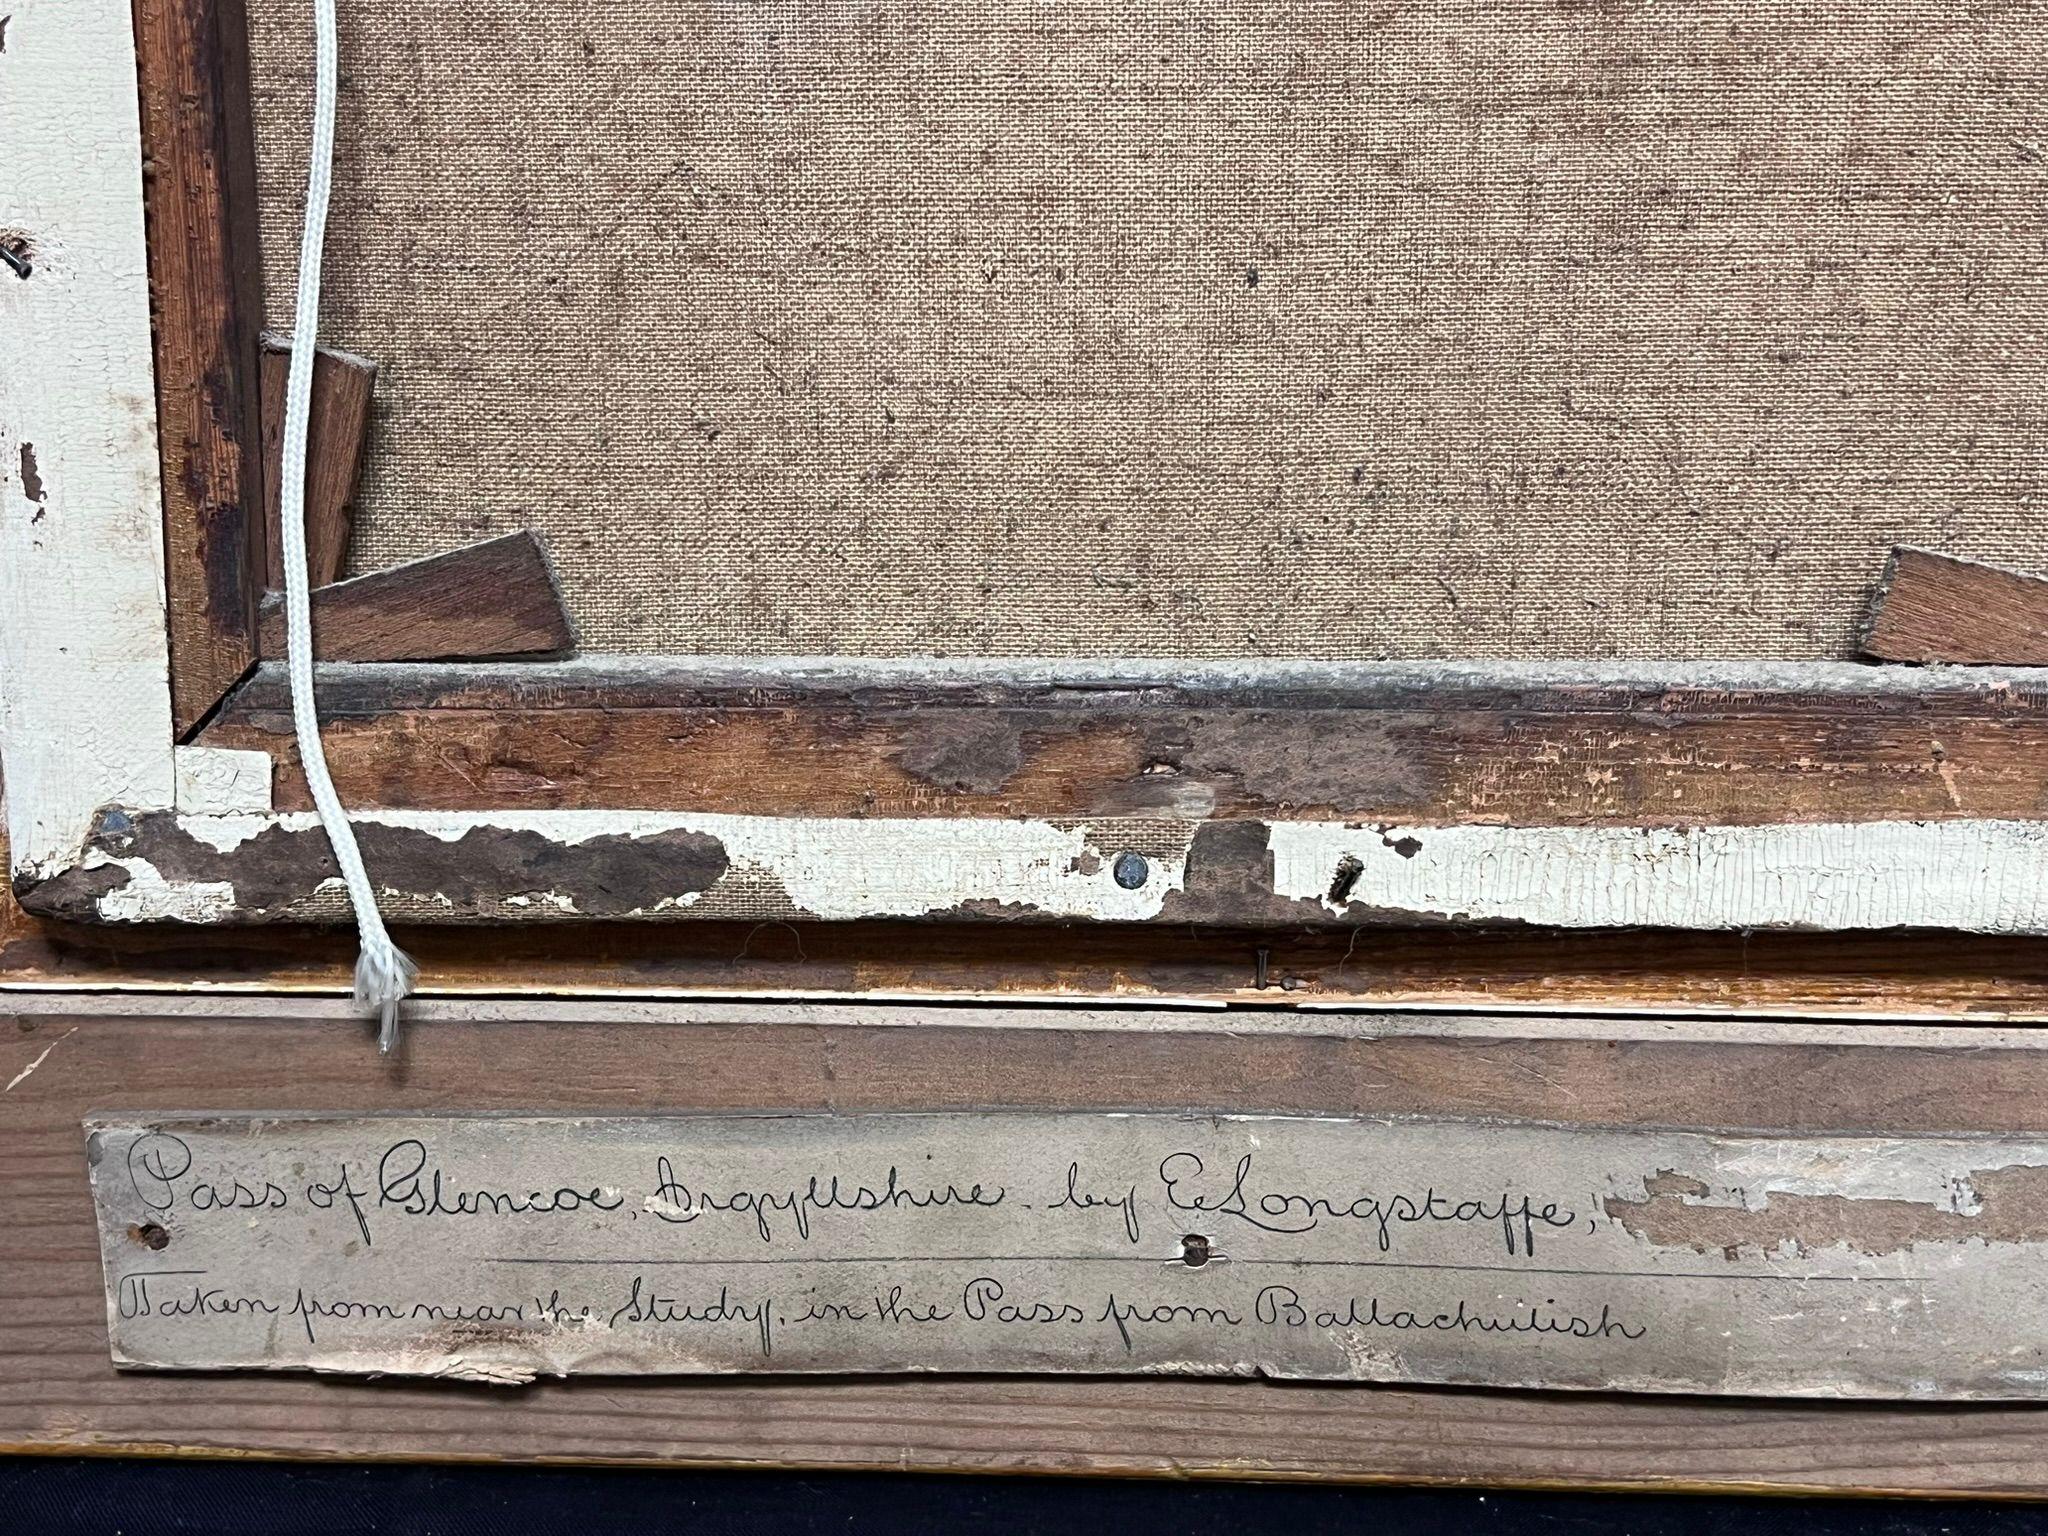 Pass of Glencoe, Argyllshire. by E Longstaffe,
Taken from near the Study, in the Pass from Ballachulish